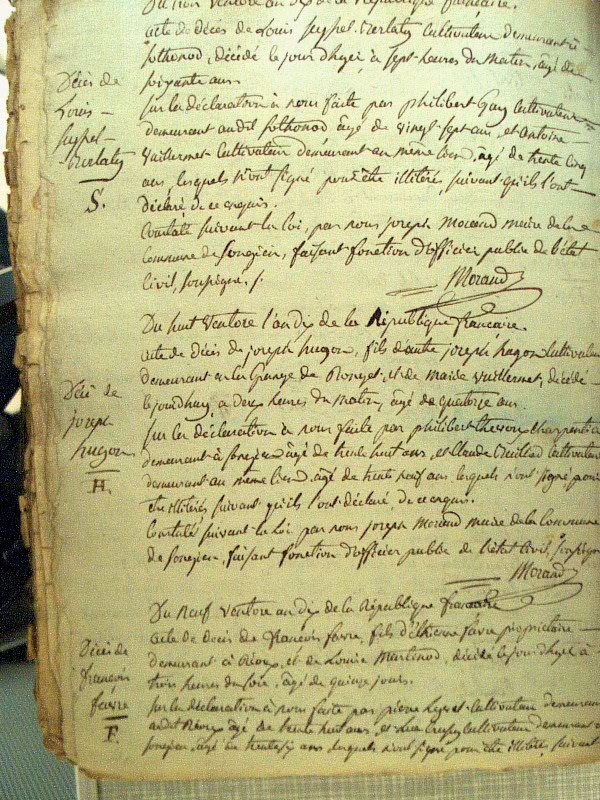 Du trois Ventose an dix de la République française.
acte de décès de Louis Seyssel cultivateur demeurant à
Sothonod, décédé le jour d'hyer à sept heures du matin, âgé de
soixante ans.
sur la déclaration à nous faite par philibert Guy cultivateur
demeurant audit Sothonod âgé de vingt sept ans, et Antoine
Vuillermet cultivateur demeurant au même lieu, âgé de trente cinq
ans, lesquels n'ont signé pour être illitéré, suivant qu'ils l'ont
déclaré de ce enquis.
Constaté suivant la loi, par nous joseph Morand maire de la
Commune de Songieu, faisant fonction d'officier public de l'état
Civil, soussigné. /.
Morand
Décès de
Louis
Seyssel
S.
Du huit Ventose l'an dix de la République française.
acte de décès de joseph hugon, fils d'autre joseph hugon Cultivateur
demeurant à la Grange de et de Marie Vuillermet, décédé
le jourdhuy, à Deux heures du matin, âgé de quatorze ans.
sur la déclaration à nous faite par philibert charpentier
demeurant à Songieu âgé de trente huit ans, et Claude Cultivateur
demeurant au même lieu, âgé de trente neuf ans lesquels n'ont signé pour
être illitérés suivant qu'ils l'ont déclaré de ce enquis.
Constaté suivant la Loi par nous joseph Morand maire de la Commune
de Songieu, faisant fonction d'officier public de l'état Civil, soussigné
Morand
Décès de
joseph
hugon
H.
Du Neuf Ventose an dix de la République française
acte de décès de françois favre, fils d'Ethienne favre propriétaire
demeurant à et de Louise Martinod, décédé le jour d'hyer à
trois heures du soir, âgé de quinze jours.
sur la déclaration à nous faite par pierre Cultivateur demeurant
audit âgé de trente huit ans, et Cultivateur demeurant à
Songieu, âgé de trente six ans lesquels n'ont signé pour être illitéré, suivant
Décès de
françois
favre
F.